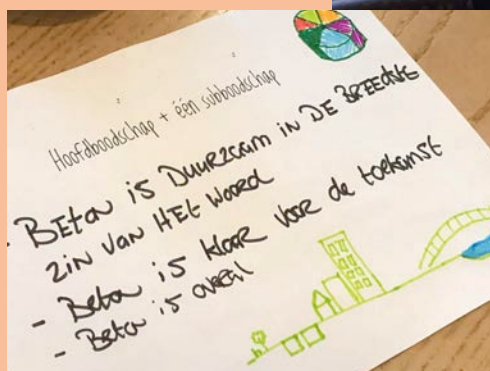 Hoofdboodschap + één subboodschap
- BEtON is DUURZAAM in DE BREEDSTE
zin van HEt WOORD
- Beton is klaar voor de toekomst
- Beton is overal